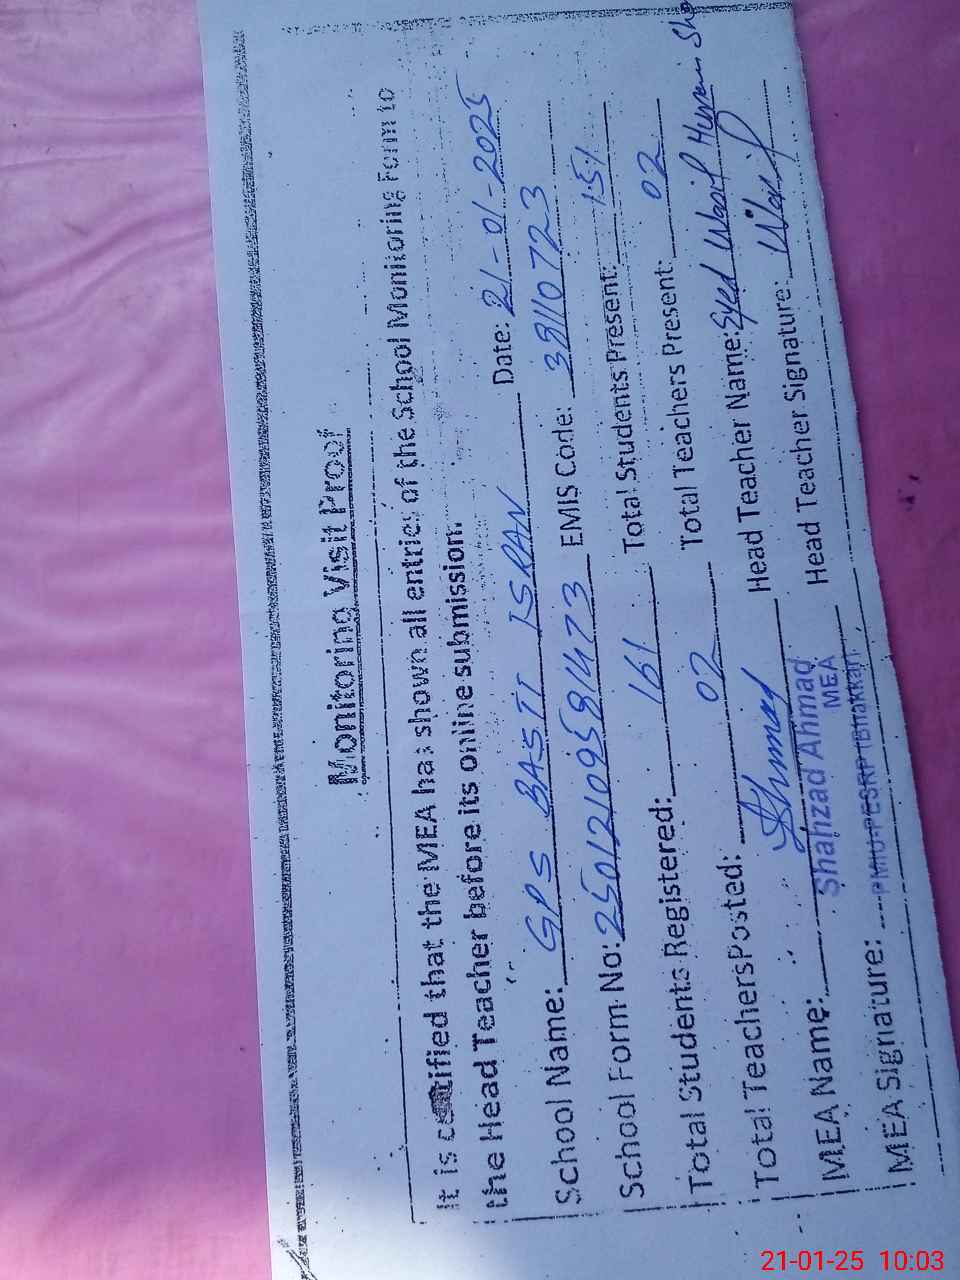 Monitoring Visit Proof
It is certified that the MEA has shown all entries of the School Monitoring Form to
the Head Teacher before its online submission.
School Name: GPS BASTI ISRAN Date: 21-01-2025
School Form No: 25012109581473 EMIS Code: 38110723
Total Students Registered: 161 Total Students Present: 151
Total Teachers Posted: 02 Total Teachers Present: 02
MEA Name: Ahmad Head Teacher Name: Syed Wasif Hussain Sha
Shahzad Ahmad
MEA
MEA Signature: PMIU-PESRP (Bhakkar) Head Teacher Signature: Wasif
21-01-25 10:03